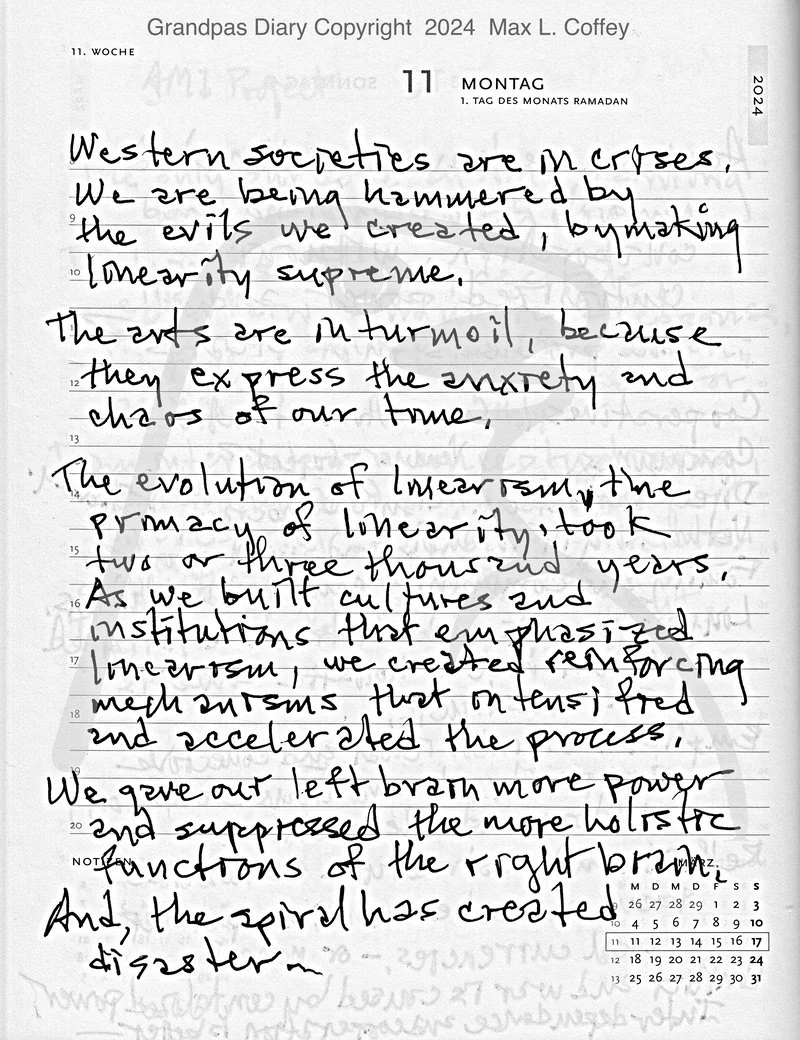 Grandpas Diary Copyright 2024 Max L. Coffey
11. WOCHE
11 MONTAG
1. TAG DES MONATS RAMADAN
2024
Western societies are in crises.
We are being hammered by
9 the evils we created, by making
10 linearity supreme.
The arts are in turmoil, because
12 they express the anxiety and
chaos of our time.
13
The evolution of linearism, the
14
primacy of linearity, took
15 two or three thousand years.
16 As we built cultures and
institutions that emphasized
17 linearism, we created reinforcing
mechanisms that intensified
18
and accelerated the process.
19
We gave our left brain more power
20 and suppressed the more holistic
NOTIZEN functions of the right brain.
MÄRZ
M D M D F S S
And, the spiral has created
9 26 27 28 29 1 2 3
10 4 5 6 7 8 9 10
11 11 12 13 14 15 16 17
disaster
12 18 19 20 21 22 23 24
13 25 26 27 28 29 30 31